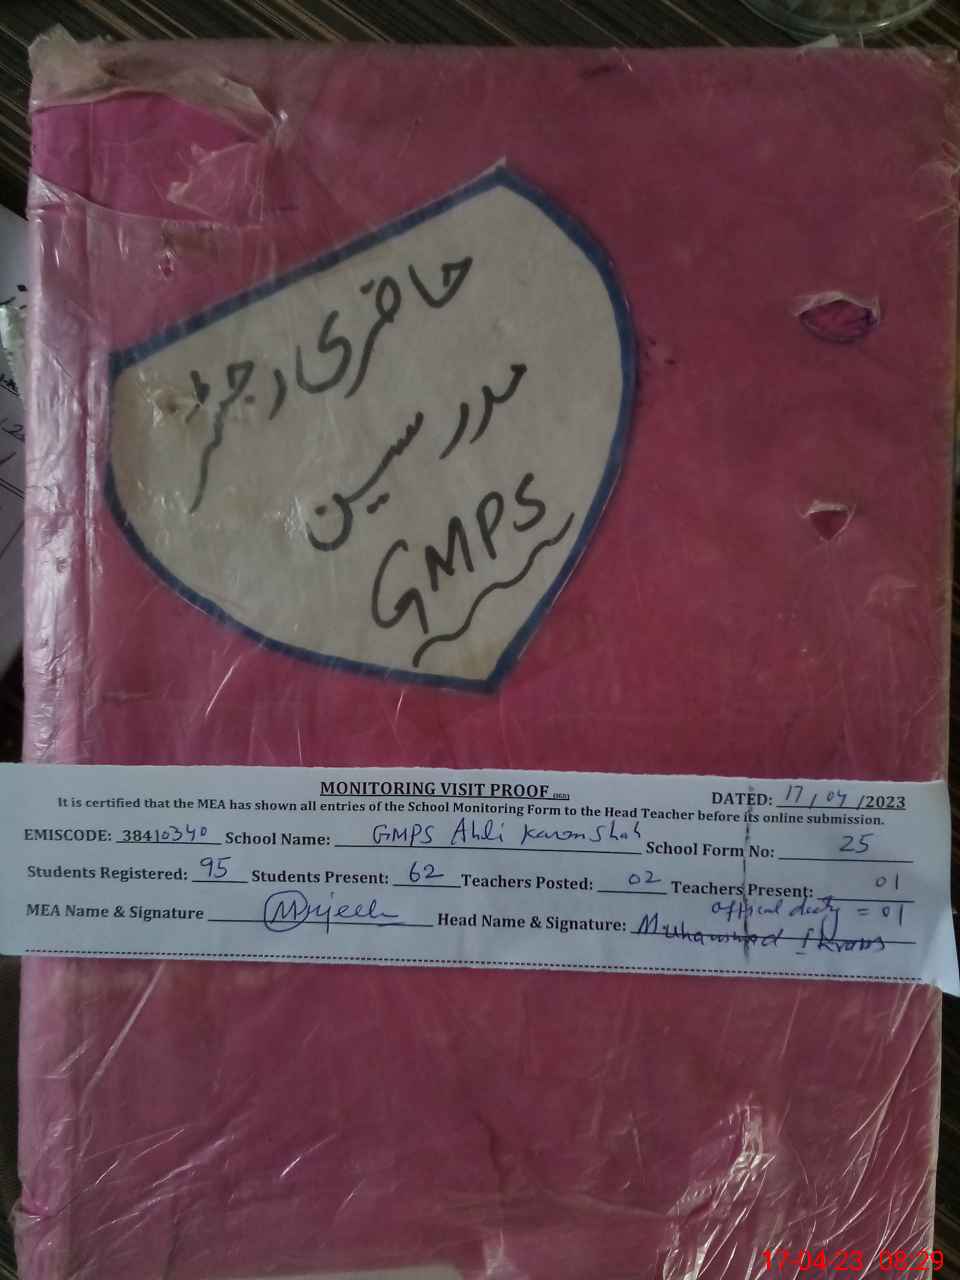 حاضری رجسٹر
مدرسین
GMPS
MONITORING VISIT PROOF
DATED: 17/04/2023
It is certified that the MEA has shown all entries of the School Monitoring Form to the Head Teacher before its online submission.
EMISCODE: 38410340 School Name: GMPS Ahli Karam Shah School Form No: 25
Students Registered: 95 Students Present: 62 Teachers Posted: 02 Teachers Present: 01
offical duty = 01
MEA Name & Signature Mujeeb Head Name & Signature: Muhammad Ikram
17-04-23 08:29